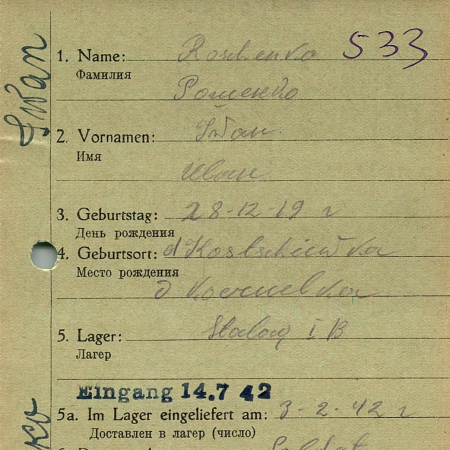 Iwan
533
1. Name: Roschenko
Фамилия
Рошенко
2. Vornamen: Iwan
Имя
Иван
3. Geburtstag: 28-12-19 г
День рождения
4. Geburtsort: d
Место рождения
д
5. Lager: Stalag I B
Лагер
Eingang 14.7 42
5a. Im Lager eingeliefert am: 3-2-42 г
Доставлен в лагер (число)
Soldat